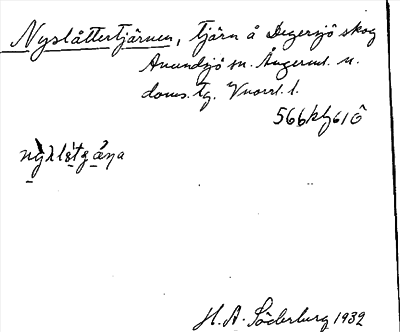 Nyslåttertjärnen, tjärn å Degersjö skog
Anundsjö sn. Ångerml. n.
doms. tg. Vuorrl. 1.
566 kf 61 Ö
H. A. Söderberg 1932